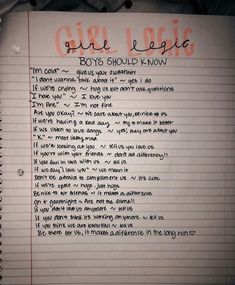 GIRL LOGIC
girl logic
BOYS SHOULD KNOW
"I'm cold" ~ give us your sweatshirt
"I don't wanna talk about it" ~ yes I do
If we're crying ~ hug us but don't ask questions
"I hate you" ~ I love you
"I'm fine" ~ I'm not fine
Are you okay? ~ we care about you, be nice to us
If we're having a bad day ~ try & make it better
If we listen to love songs ~ yes, they are about you
"K" ~ most likely mad
If we're looking at you ~ tell us you love us
If you're with your friends ~ don't act differently!!
If you fall in love with us ~ tell us
If we say "I love you" ~ we mean it
Don't be afraid to compliment us ~ it's cute
If we're upset ~ hugs, just hugs
Be nice to our friends ~ it makes a difference
Ok & goodnight ~ are not the same!!
If you don't love us anymore ~ tell us
If you don't think it's working anymore ~ tell us
If you think we are beautiful ~ tell us
Be there for us, it makes a difference in the long run ♡